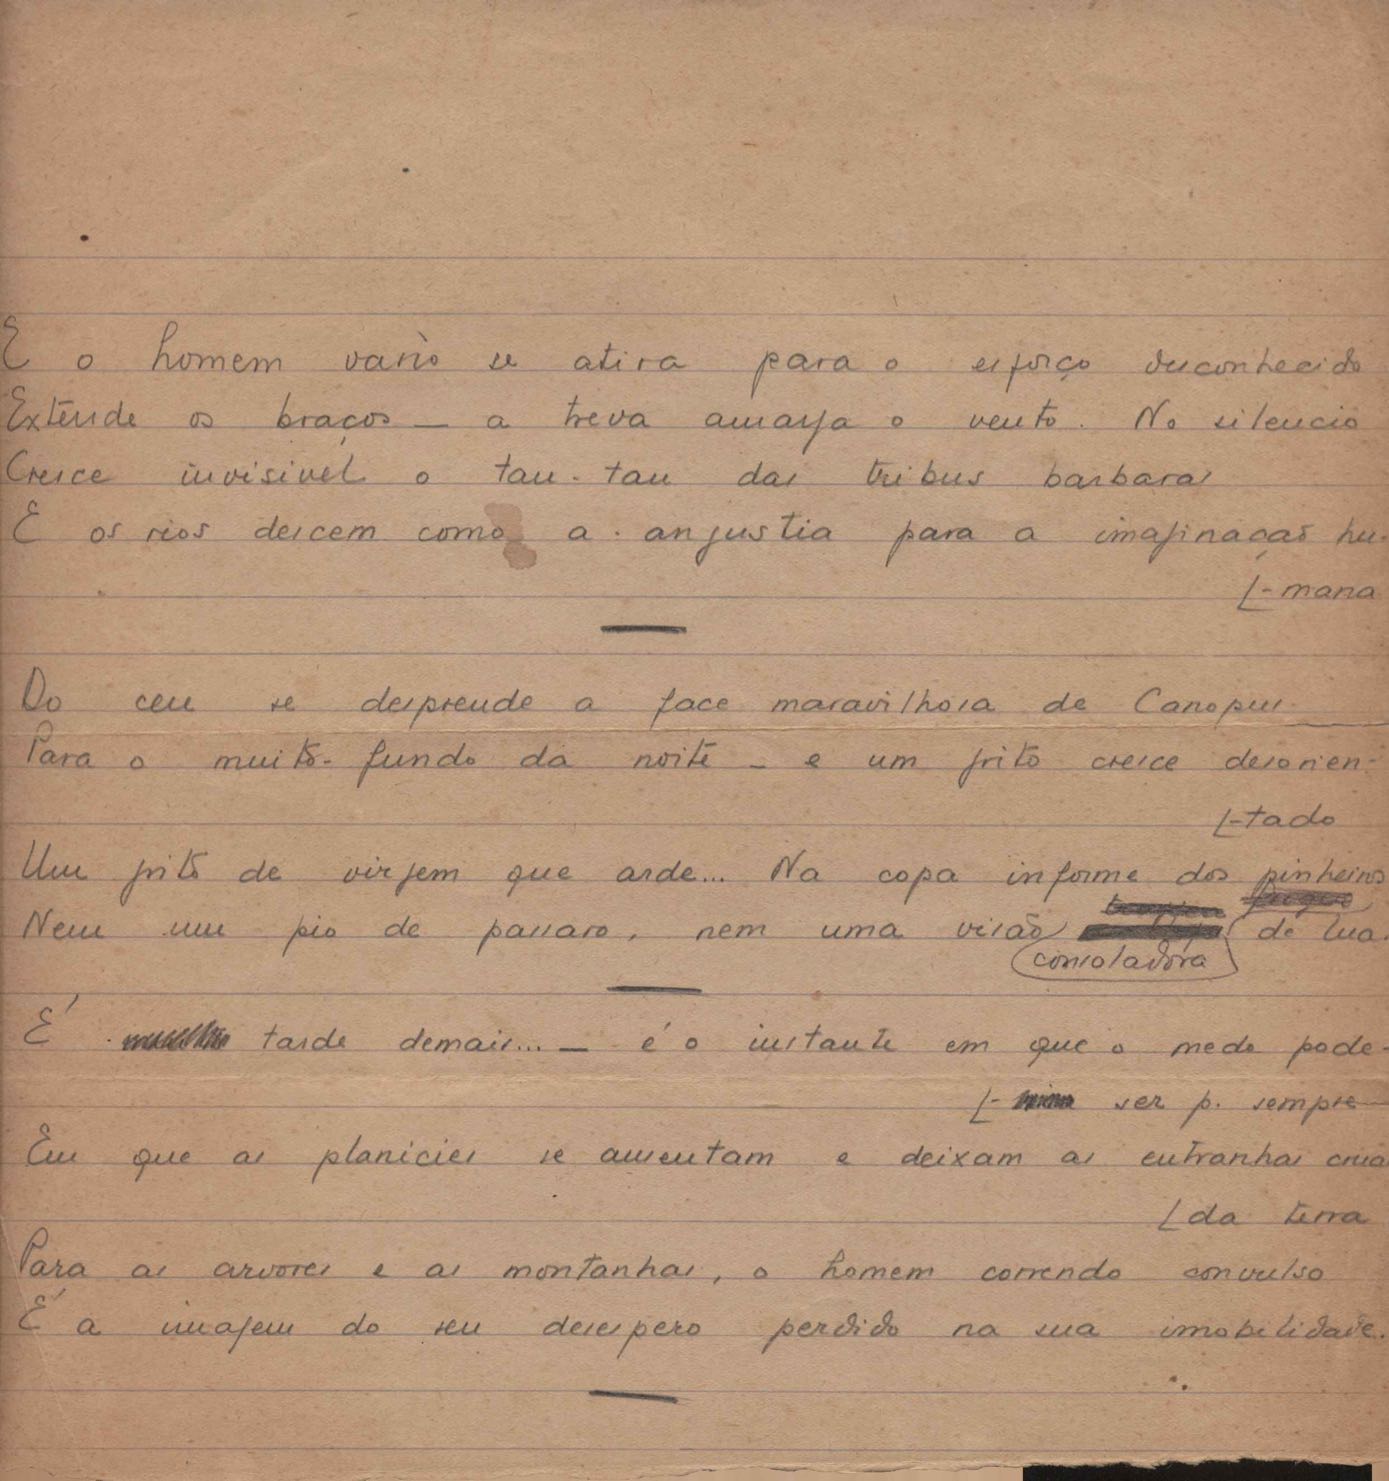 E o homem vario se atira para o esforço desconhecido
Extende os braços — a treva amarga o vento. No silencio
Cresce invisivel o tan-tan das tribus barbaras
E os rios descem como a angustia para a imaginação hu-
[-mana
Do ceu se desprende a face maravilhosa de Canopus
Para o muito-fundo da noite — e um grito cresce desorien-
[-tado
Um grito de virgem que arde... Na copa informe dos pinheiros
Nem um pio de passaro, nem uma visão consoladora de lua.
É tarde demais... — é o instante em que o medo pode-
[- ser p. sempre
Em que as planicies se ausentam e deixam as entranhas cruas
[da terra
Para as arvores e as montanhas, o homem correndo convulso
É a imagem do seu desespero perdido na sua imobilidade.